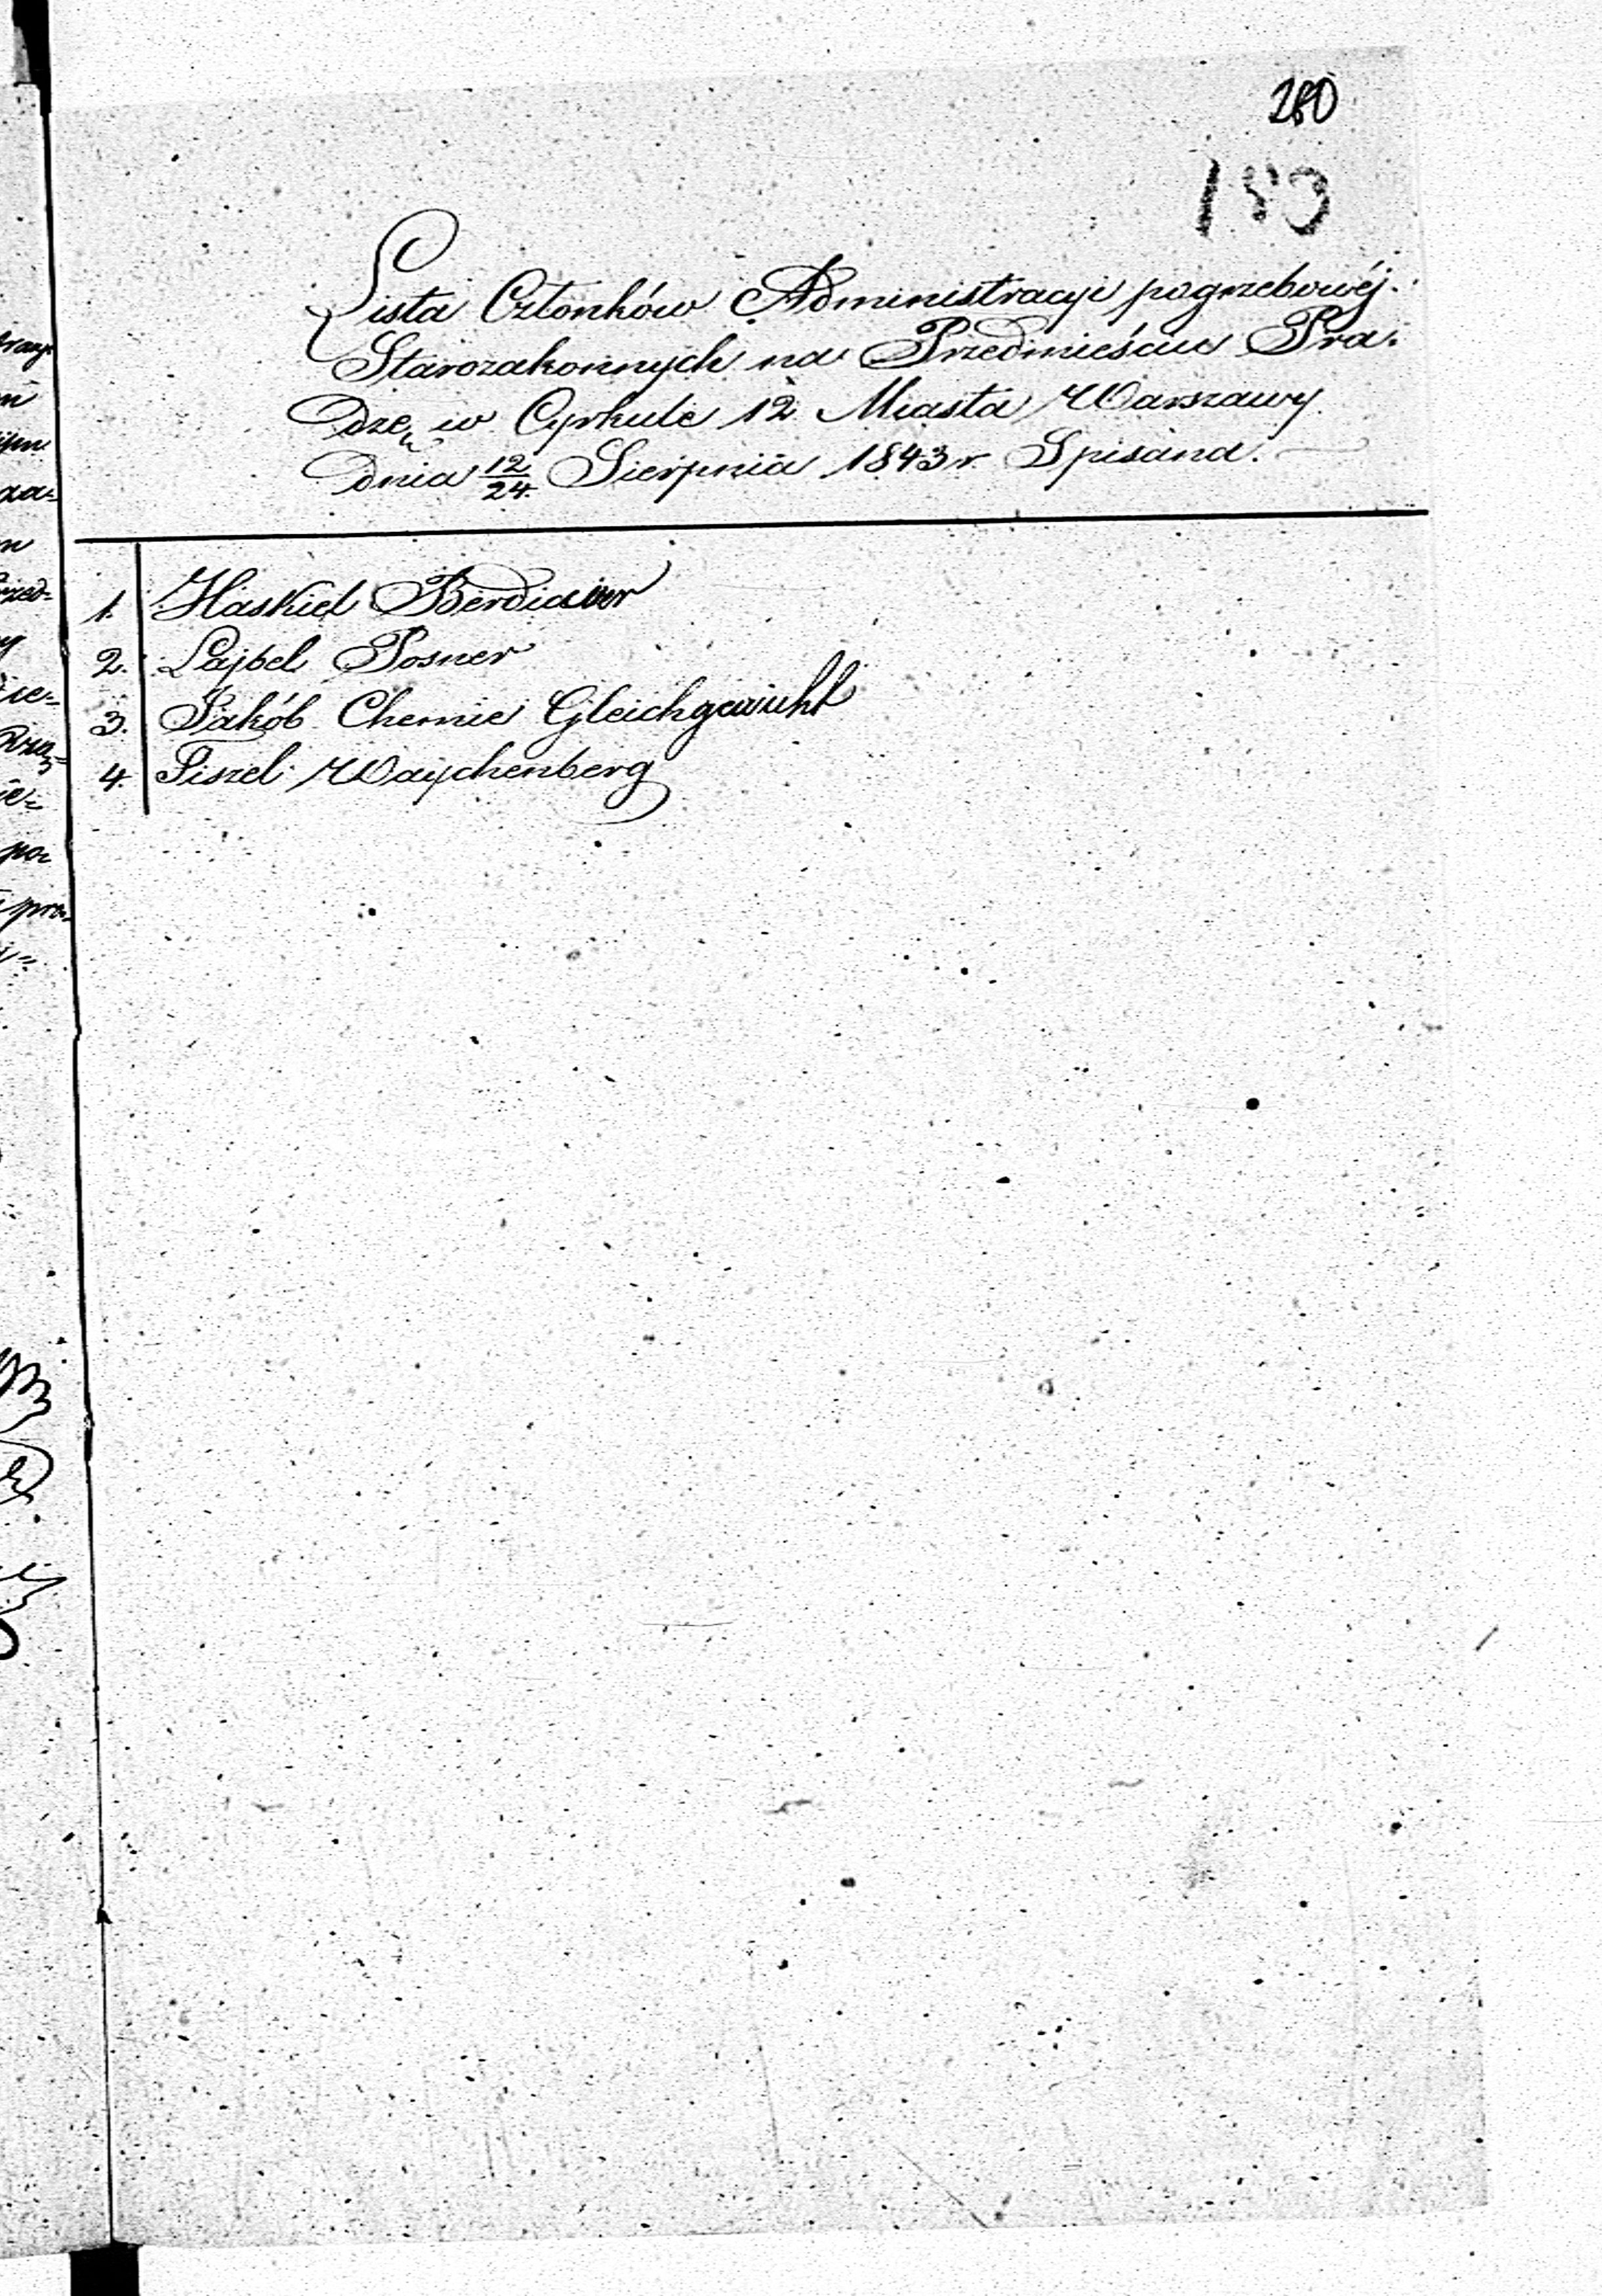 280
183
Lista Członków Administracyi pogrzebowéj
Starozakonnych na Przedmieściu Pra-
dze, w Cyrkule 12 Miasta Warszawy
dnia 12/24 Sierpnia 1843 r. Spisana.
1. Haskiel Berdiawer
2. Lajbel Posner
3. Jakób Chemie Gleichgewicht
4. Fiszel Waychenberg